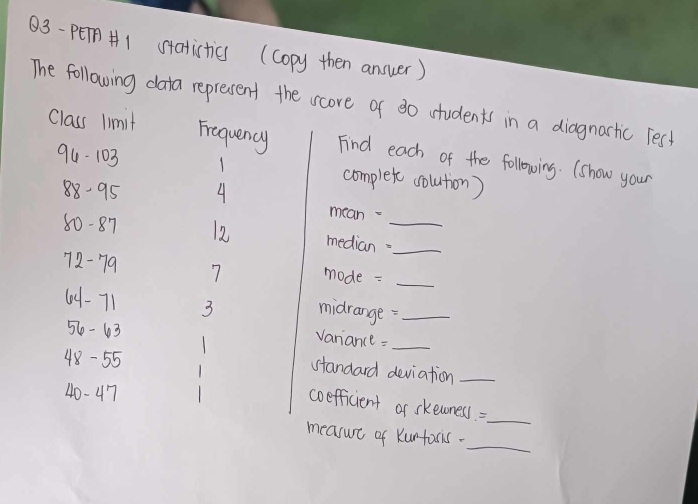 Q3 - PETA #1 statistics (Copy then answer)
The following data represent the score of 30 students in a diagnostic Test
Class limit Frequency
96 - 103 1
88 - 95 4
80 - 87 12
72 - 79 7
64 - 71 3
56 - 63 1
48 - 55 1
40 - 47 1
Find each of the following. (show your
complete solution)
mean = ____
median = ____
mode = ____
midrange = ____
Variance = ____
standard deviation ____
coefficient of skewness = ____
measure of Kurtosis - ____